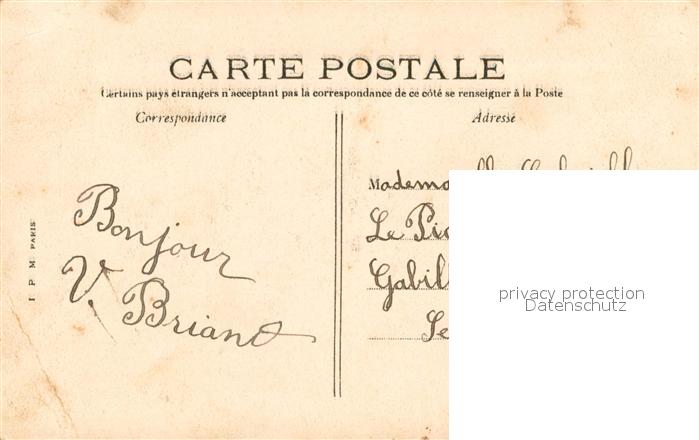 CARTE POSTALE
Certains pays étrangers n'acceptant pas la correspondance de ce côté se renseigner à la Poste
Correspondance
Adresse
Bonjour
V. Briand
I P M PARIS
Le
privacy protection
Datenschutz